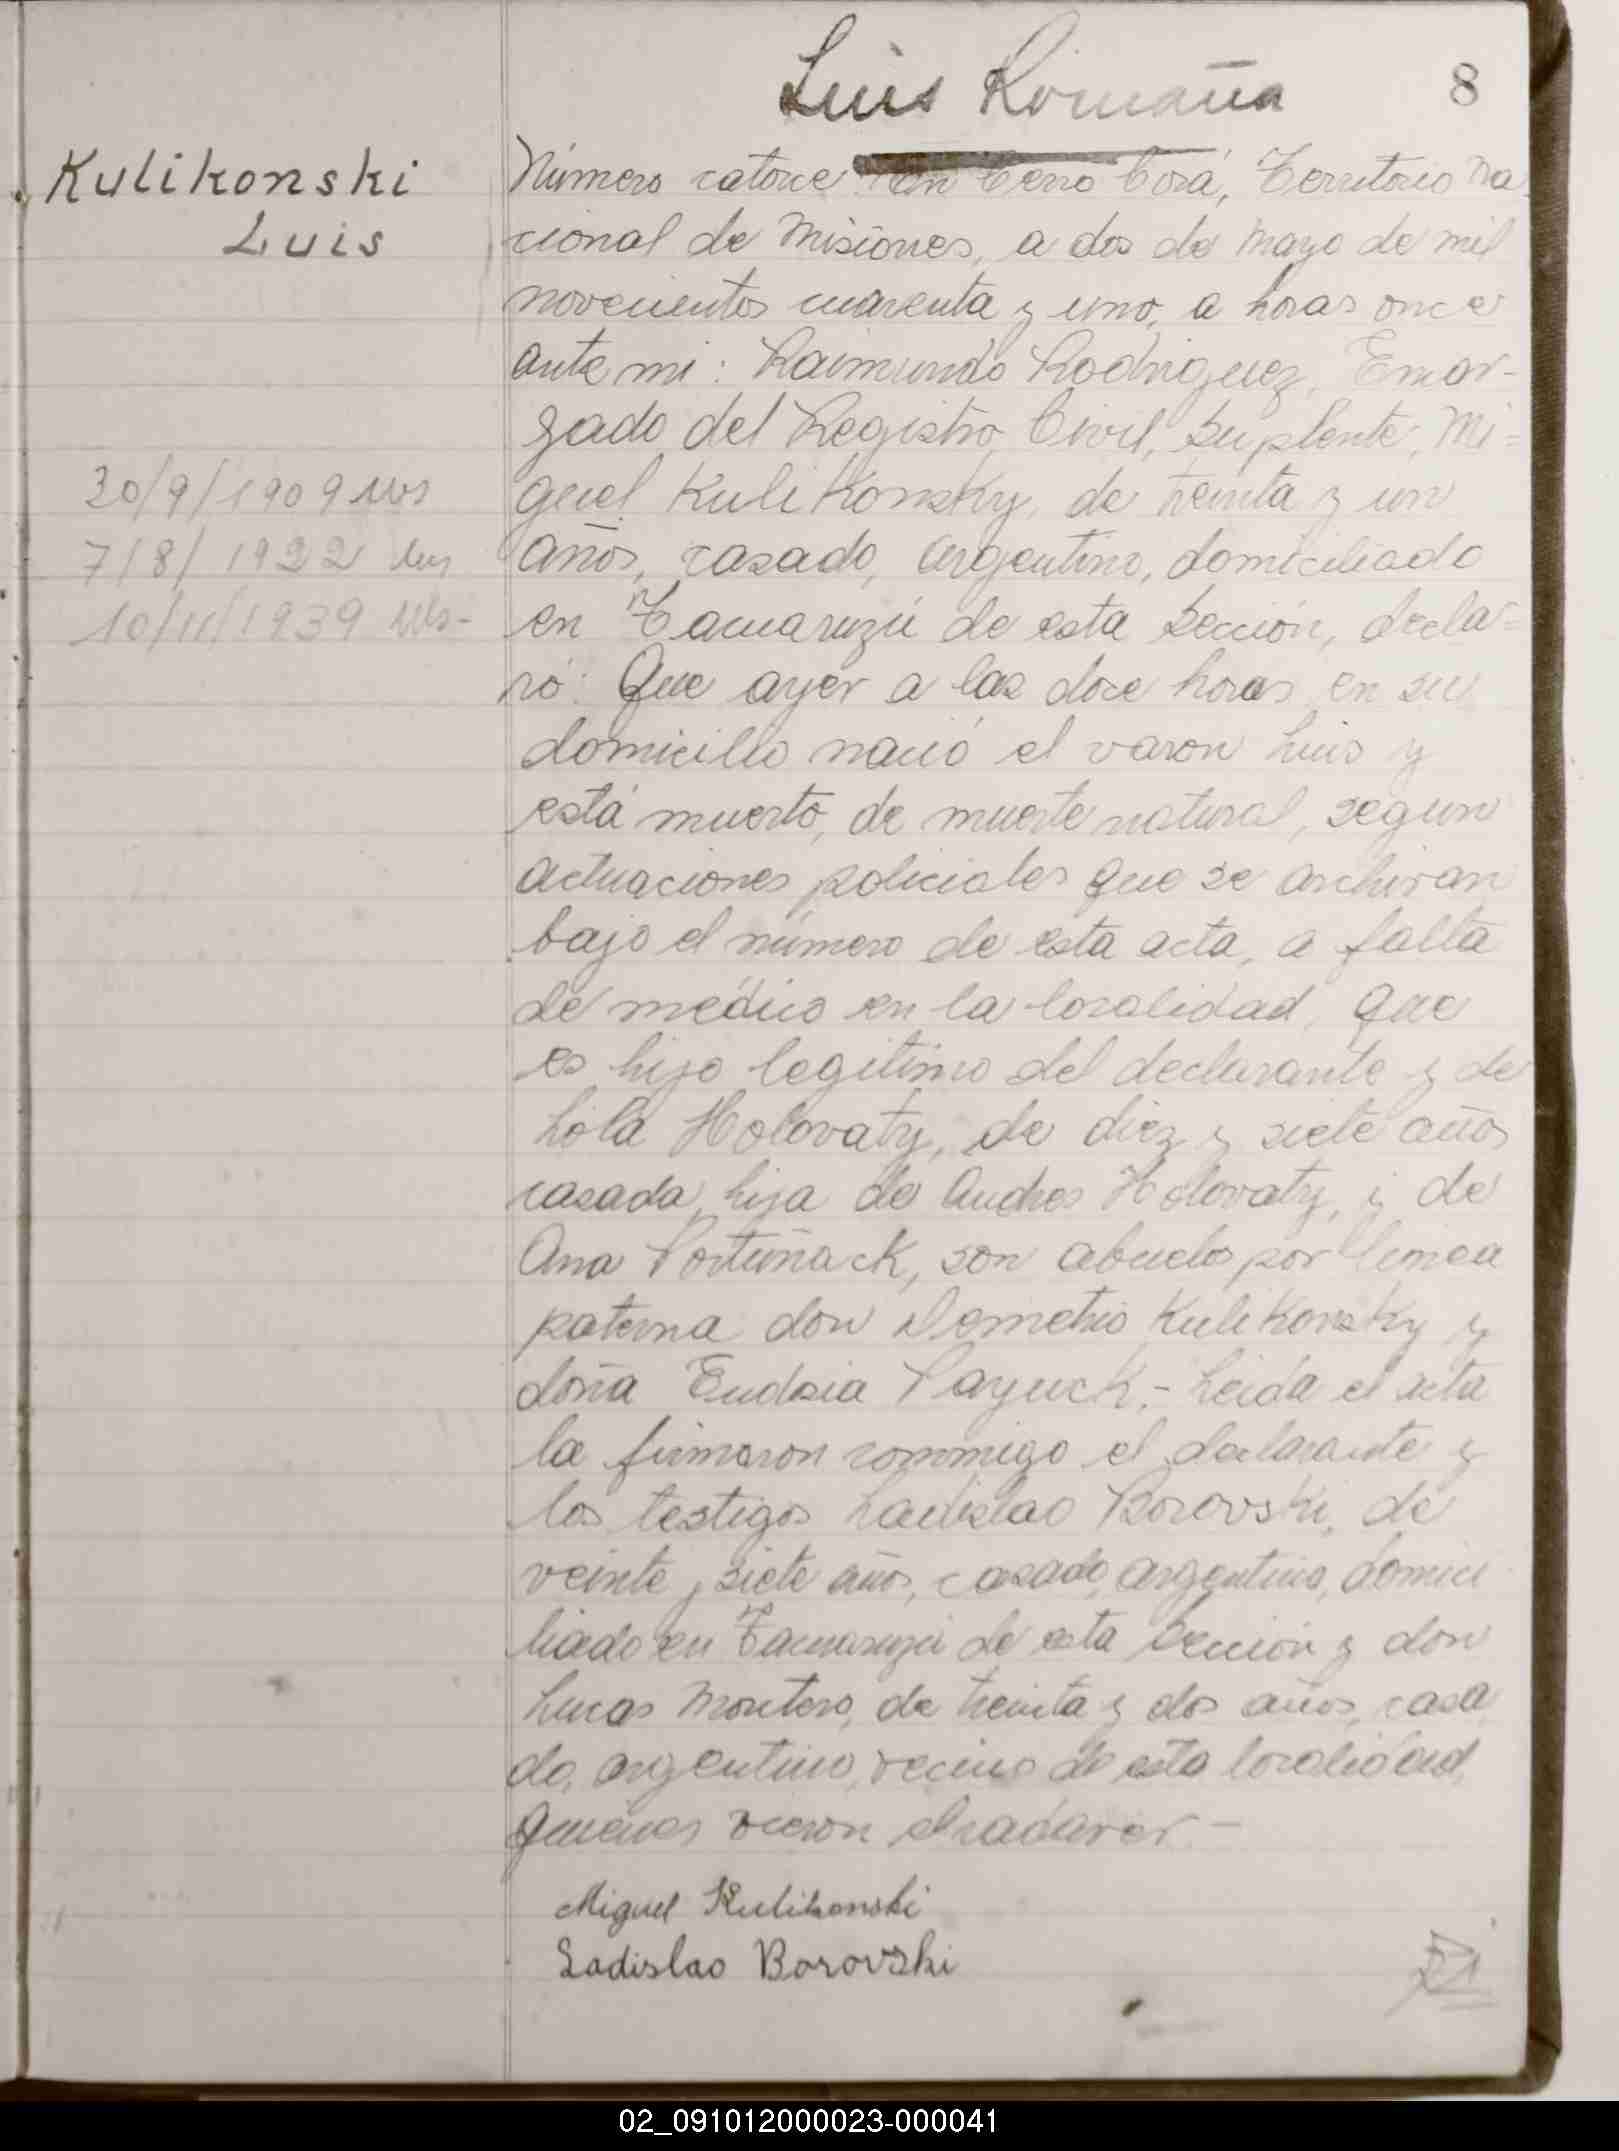 Luis Romaña
8
Kulikonski
Luis
30/9/1909
7/8/1922
10/11/1939
Número catorce. En Cerro Corá, Territorio Na-
cional de Misiones, a dos de Mayo de mil
novecientos cuarenta y uno, a horas once
ante mi: Raimundo Rodriguez, Encar-
gado del Registro Civil, Suplente, Mi=
guel Kulikonsky, de treinta y un
años, casado, argentino, domiciliado
en Tacuaruzú de esta Sección, decla=
ró: Que ayer a las doce horas en su
domicilio nació el varon Luis y
está muerto, de muerte natural, segun
actuaciones policiales que se archivan
bajo el número de esta acta, a falta
de médico en la localidad, que
es hijo legitimo del declarante y de
Lola Holovaty, de diez y siete años
casada, hija de Andres Holovaty, i de
Ana Portuñack, son abuelos por linea
paterna don Demetrio Kulikonsky y
doña Eudosia Payuck.- Leida el acta
la firmaron conmigo el declarante y
los testigos Ladislao Borovski, de
veinte y siete años, casado, argentino, domici
liado en Tacuaruzú de esta Sección y don
Lucas Montero, de treinta y dos años, casa
do, argentino, vecino de esta localidad,
quienes vieron el cadaver.-
Miguel Kulikonski
Ladislao Borovski
02_091012000023-000041